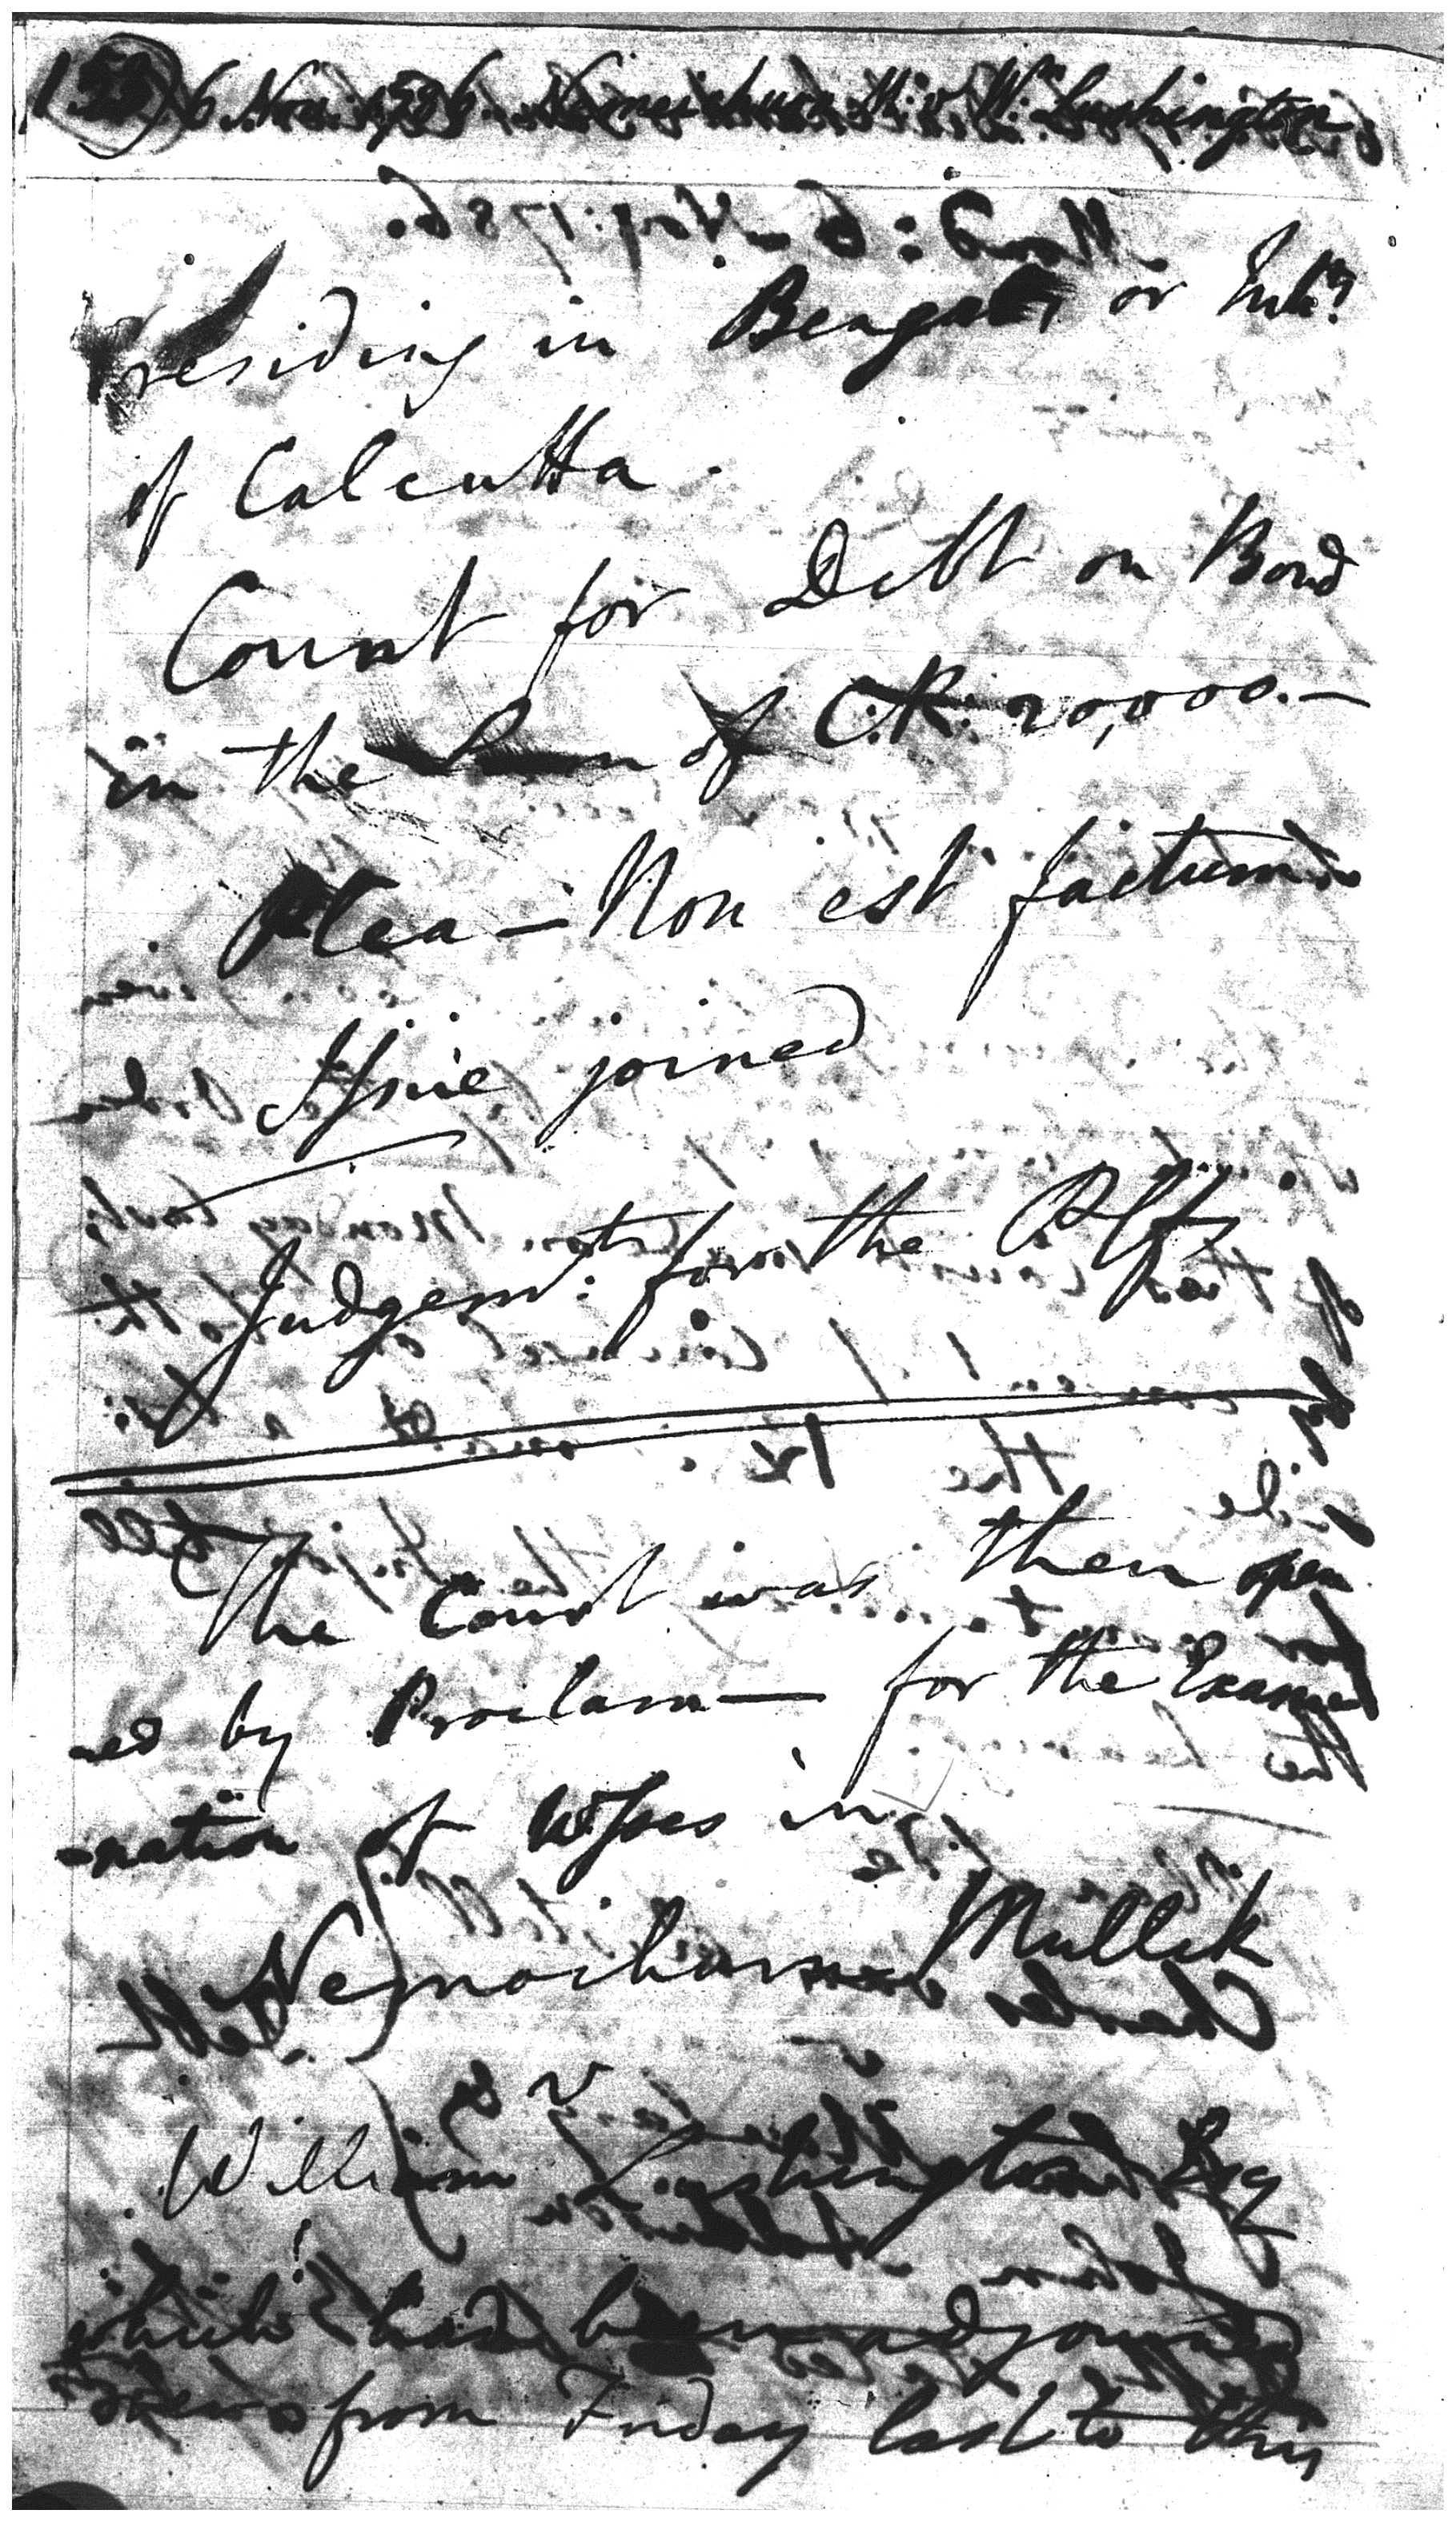 6 Nov: 1786. Nemoichurn M: v. Wm. Lushington
residing in Bengal, or Inh:
of Calcutta.
Count for Debt on Bond
in the Sum of C.R. 20,000.—
Plea — Non est factum
Issue joined
Judgemt: for the Plff
The Court was then open
ned by Proclam— for the Exami
-nation of Wsses in
Nemoichurn Mullik
v
William Lushington Esq
which had been adjourned
from Friday last to this